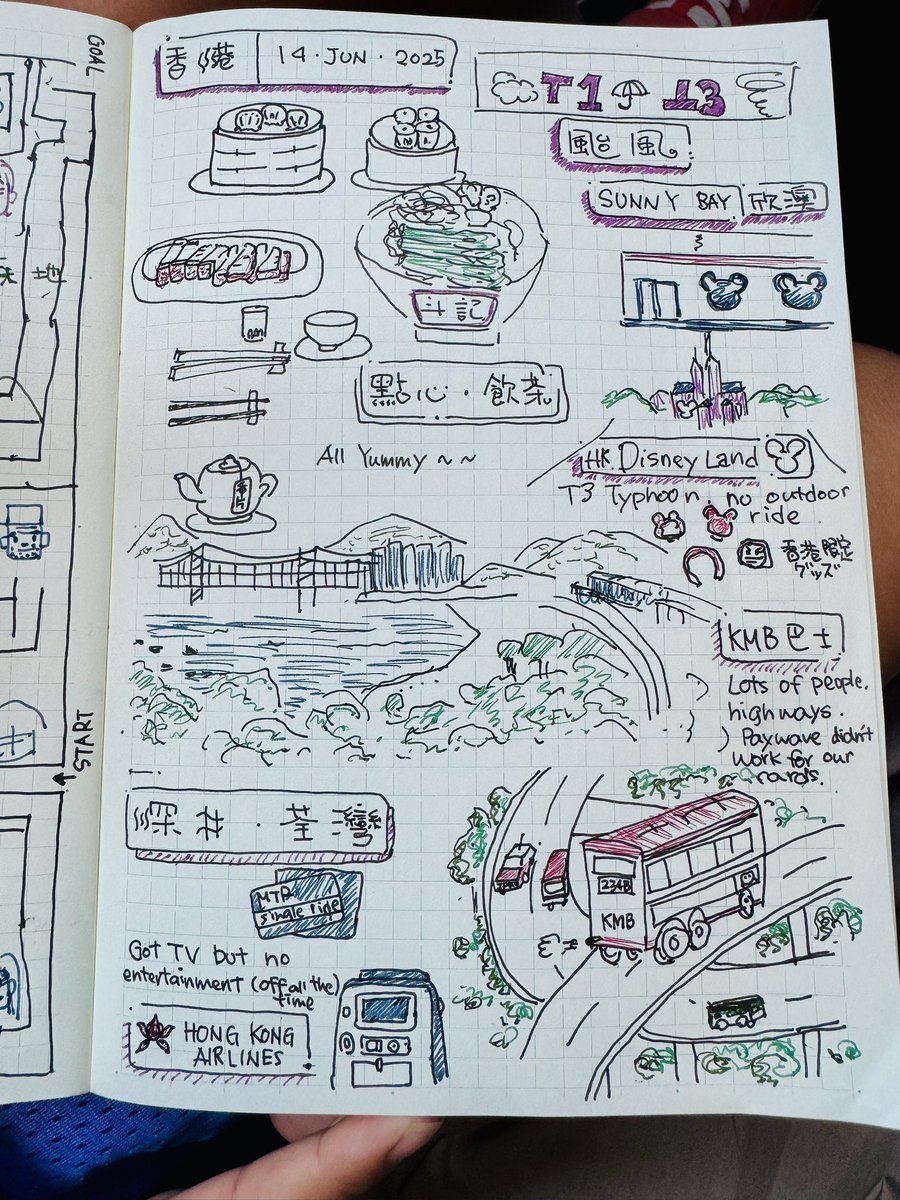 GOAL
START
香港 14·JUN·2025
T1 T3
颱風
SUNNY BAY 欣澳
斗記
點心·飲茶
All Yummy ~ ~
HK Disney Land
T3 Typhoon, no outdoor
ride.
香港限定
グッズ
KMB 巴士
Lots of people.
highways.
Paywave didn't
work for our
cards.
深井·荃灣
MTR
single ride
234B
KMB
Got TV but no
entertainment (off all the)
time
HONG KONG
AIRLINES